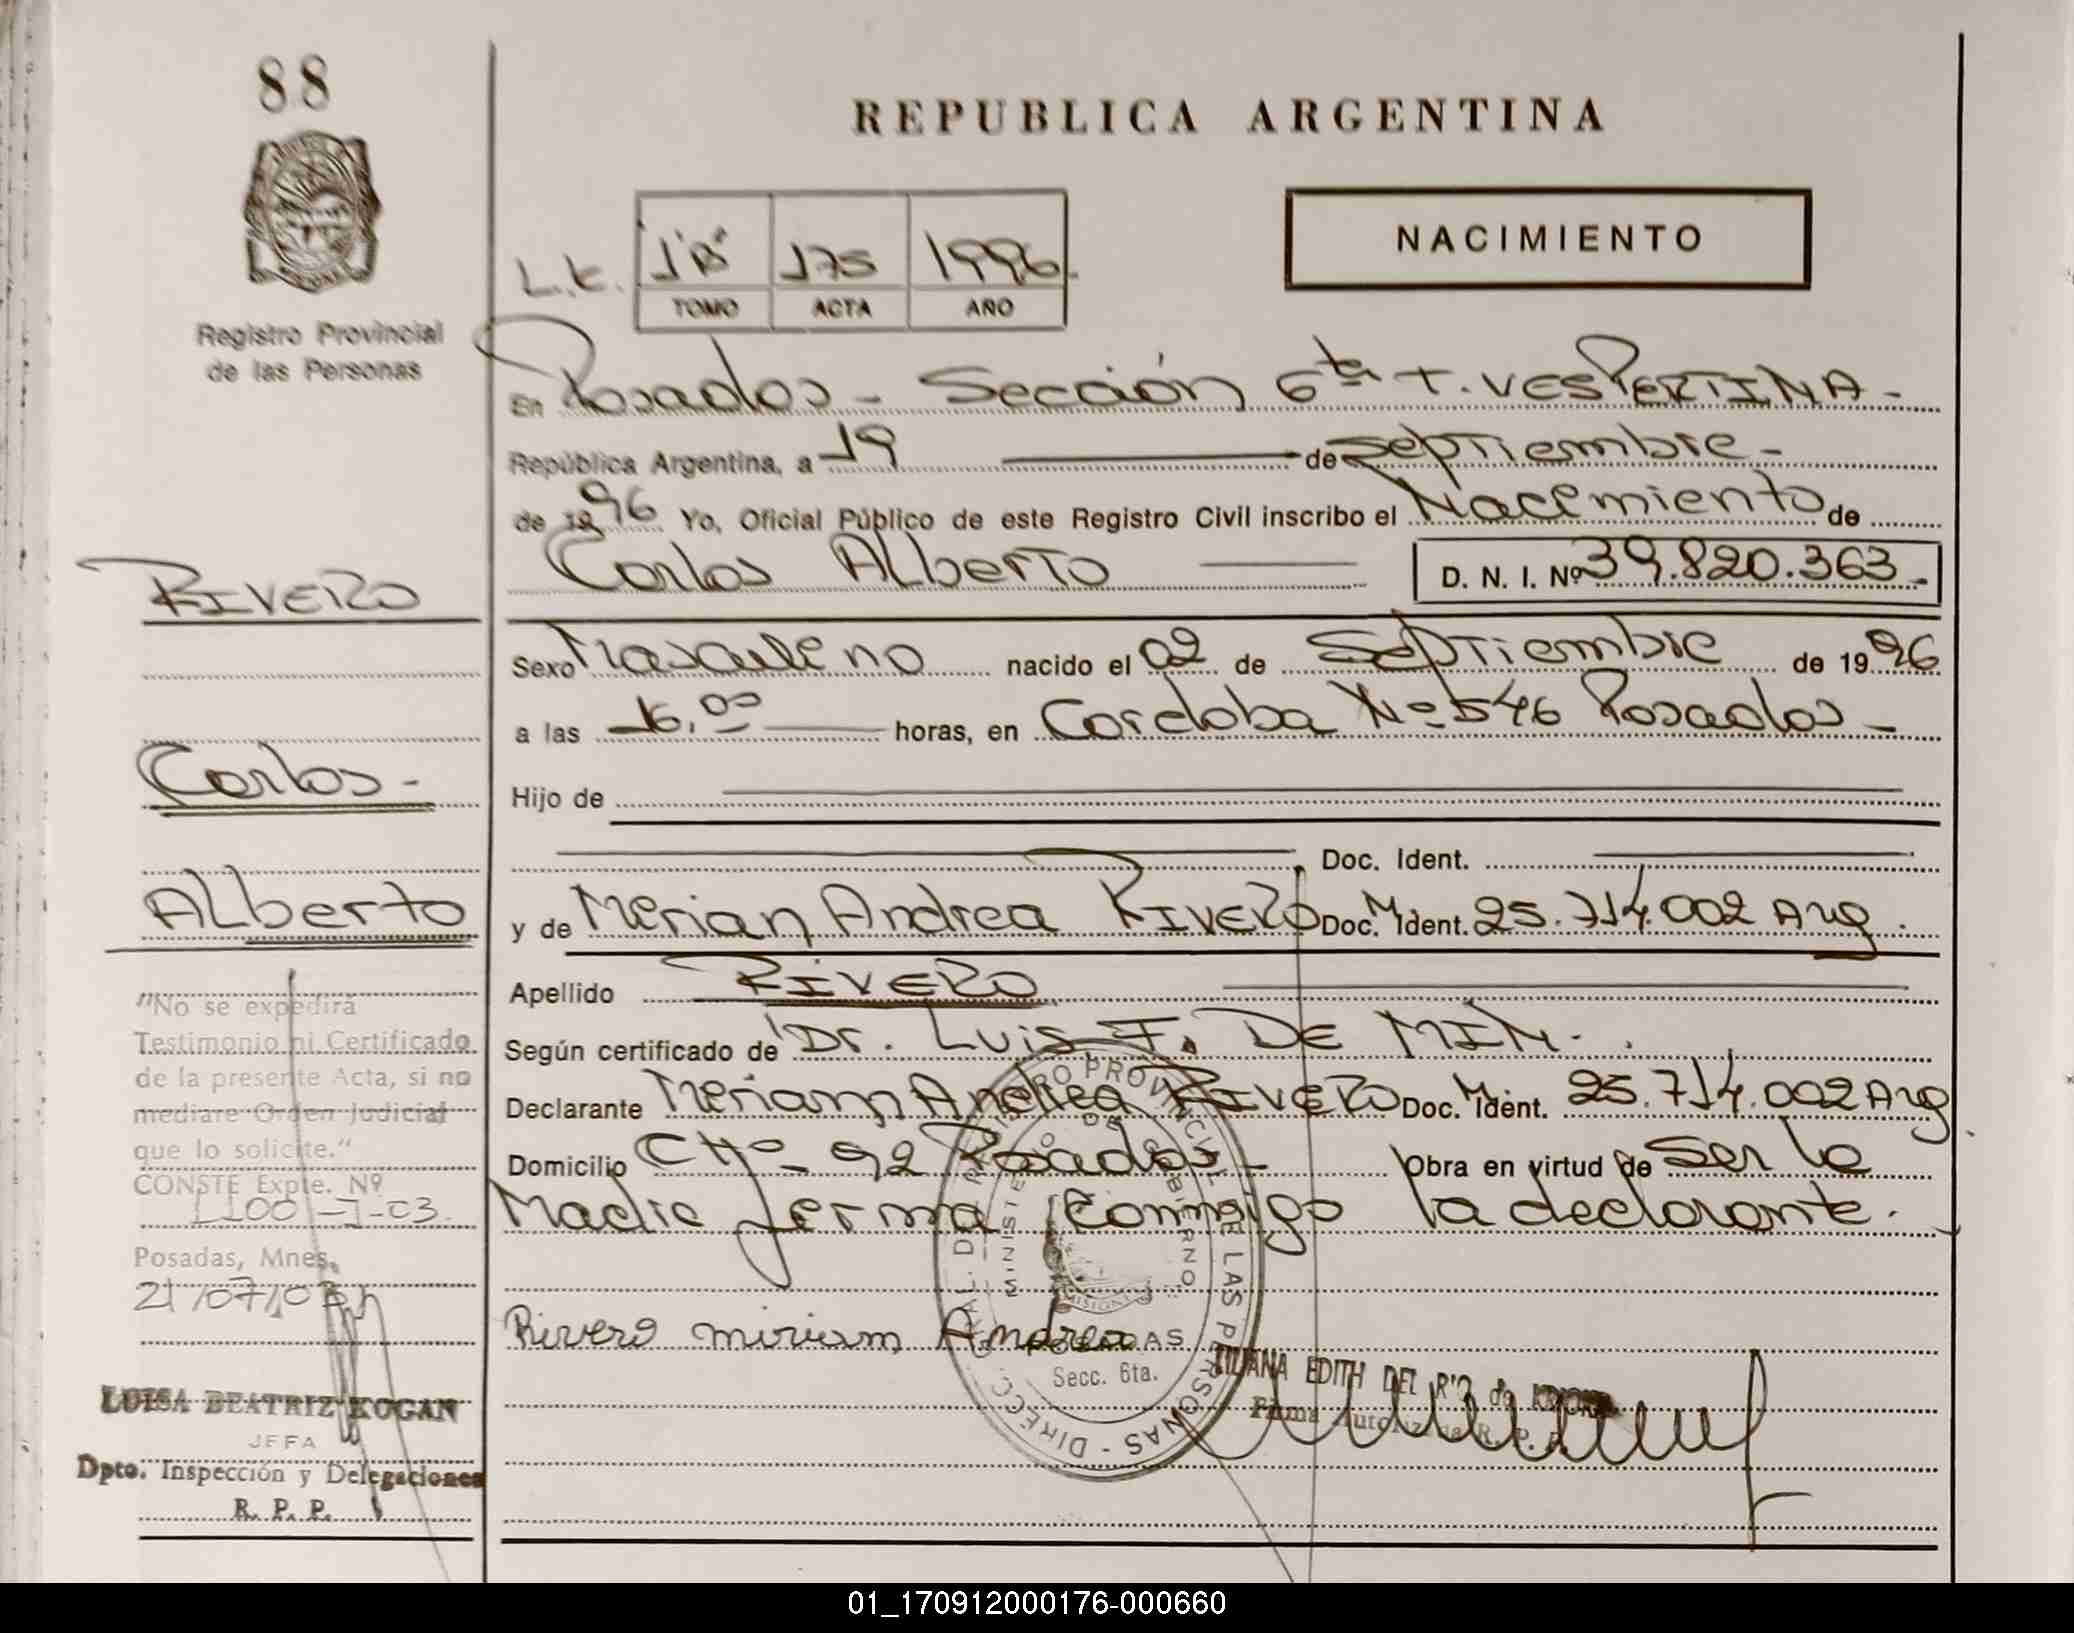 88
REPUBLICA ARGENTINA
NACIMIENTO
L.t. 1"B" 175 1996.
TOMO ACTA AÑO
Registro Provincial
de las Personas
En Posadas - Sección 6ta T. VESPERTINA -
República Argentina, a 19 de septiembre -
de 1996 Yo, Oficial Público de este Registro Civil inscribo el Nacimiento de
Carlos Alberto D. N. I. Nº 39.820.363 -
RIVERO
Carlos -
Alberto
Sexo Masculino nacido el 02 de Septiembre de 1996
a las 16,00 horas, en Cordoba Nº 546 Posadas -
Hijo de
Doc. Ident.
y de Meriam Andrea RIVERO Doc. Ident. 25.714.002 Arg.
Apellido RIVERO
Según certificado de Dr. Luis F. DE MIN.
Declarante Meriam Andrea RIVERO Doc. Ident. 25.714.002 Arg
Domicilio CHº - 92 Posadas - Obra en virtud de ser la
Madre firma conmigo la declarante.
Rivero miriam Andrea
"No se expedirá
Testimonio ni Certificado
de la presente Acta, si no
mediare Orden Judicial
que lo solicite."
CONSTE Expte. Nº
1100-I-03.
Posadas, Mnes,
21/07/03
LUISA BEATRIZ KOGAN
JEFA
Dpto. Inspección y Delegaciones
R. P. P.
DIRECC. GRAL. DEL REGISTRO PROVINCIAL DE LAS PERSONAS -
MINISTERIO DE GOBIERNO
MISIONES
POSADAS
Secc. 6ta.
LILIANA EDITH DEL R. de
Firma Autorizada R. P. P.
01_170912000176-000660